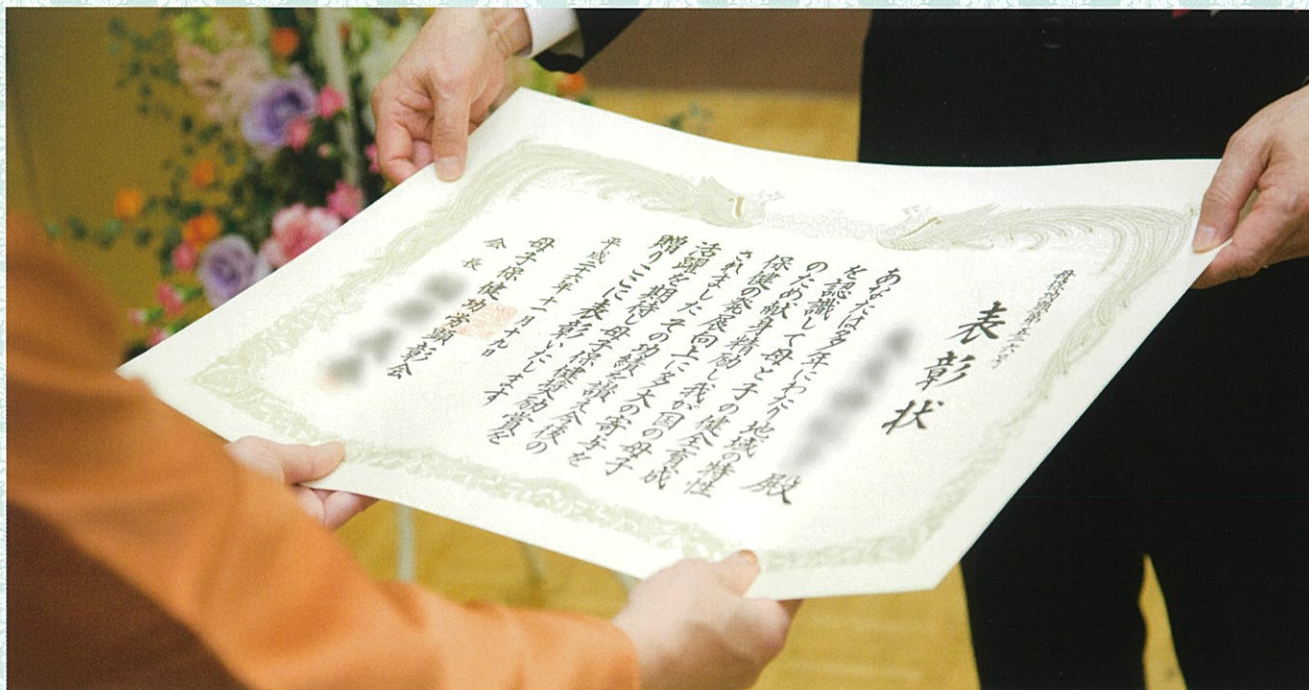 表彰状
殿
あなたは多年にわたり地域の特性
を認識して母と子の健全育成
のため献身精励し我が国の母子
保健の発展向上に多大の寄与を
されました その功績を讃え今後の
活躍を期待し母子保健奨励賞を
贈りここに表彰いたします
平成二十六年十一月十九日
母子保健功労顕彰会
会長